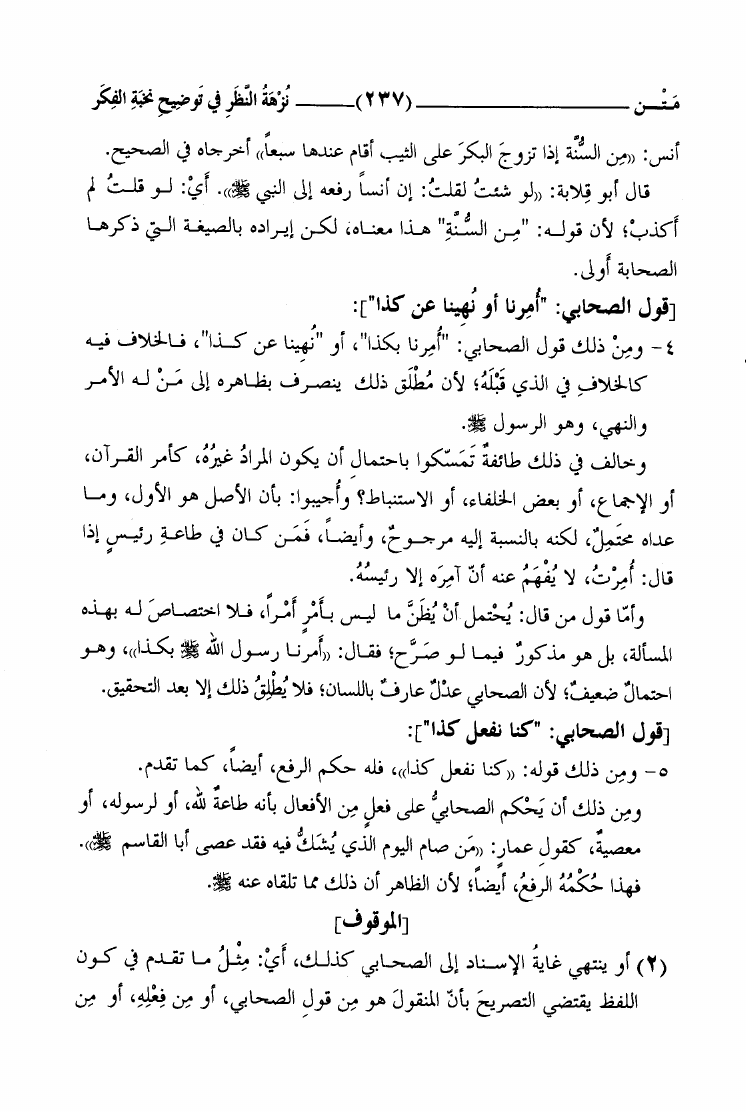 مَتْــن ــــــــــــــــــــــــــــــــــ (٢٣٧) ــــــــــ نُزْهَةُ النَّظَرِ في تَوضِيحِ نُخبَةِ الفِكَر
أنس: «مِن السُّنَّة إذا تزوجَ البكرَ على الثيب أقام عندها سبعاً» أخرجاه في الصحيح.
قال أبو قِلابة: «لو شئتُ لقلتُ: إن أنساً رفعه إلى النبي ﷺ». أَيْ: لـو قلتُ لم
أكذبْ؛ لأن قولـه: "مِـن السُّنَّةِ" هـذا معنـاه، لكـن إيـراده بالصيغـة الـتي ذكرهـا
الصحابة أَولى.
[قول الصحابي: "أُمِرنا أو نُهِينا عن كذا"]:
٤- ومِنْ ذلك قول الصحابي: "أُمِرنا بكذا"، أو "نُهِينا عن كـذا"، فـالخلاف فيه
كالخلافِ في الذي قَبْلَهُ؛ لأن مُطْلَق ذلك ينصـرف بظاهره إلى مَـنْ لـه الأمـر
والنهي، وهو الرسول ﷺ.
وخالف في ذلك طائفةٌ تَمَسّكوا باحتمالِ أن يكون المرادُ غيرُهُ، كأمر القـرآن،
أو الإجماع، أو بعض الخلفاء، أو الاستنباط؟ وأُجيبوا: بأن الأصل هو الأول، ومـا
عداه محتَمِلٌ، لكنه بالنسبة إليه مرجـوحٌ، وأيضـاً، فَمَـن كـان في طاعـةِ رئيـسٍ إذا
قال: أُمِرْتُ، لا يُفْهَمُ عنه أنّ آمِرَه إلا رئيسُهُ.
وأمّا قول من قال: يُحْتمل أنْ يُظَنَّ ما ليس بـأَمْرٍ أَمْـراً، فـلا اختصـاصَ لـه بهـذه
المسألة، بل هو مذكورٌ فيمـا لـو صَرَّح؛ فقال: «أمرنـا رسـول الله ﷺ بكذا»، وهـو
احتمالٌ ضعيفٌ؛ لأن الصحابي عدْلٌ عارفٌ باللسان؛ فلا يُطْلِقُ ذلك إلا بعد التحقيق.
[قول الصحابي: "كنا نفعل كذا"]:
٥- ومِن ذلك قوله: «كنا نفعل كذا»، فله حكم الرفع، أيضاً، كما تقدم.
ومِن ذلك أن يَحْكم الصحابيُّ على فعلٍ مِن الأفعال بأنه طاعةٌ لله، أو لرسوله، أو
معصيةٌ، كقولِ عمارٍ: «مَن صام اليوم الذي يُشَكُّ فيه فقد عصى أبا القاسم ﷺ».
فهذا حُكْمُهُ الرفعُ، أيضاً؛ لأن الظاهر أن ذلك مما تلقاه عنه ﷺ.
[الموقوف]
(٢) أو ينتهي غايةُ الإسـناد إلى الصحـابي كذلـك، أَيْ: مِثْـلُ مـا تقدم في كـون
اللفظ يقتضي التصريحَ بأنّ المنقولَ هو مِن قولِ الصحابي، أو مِن فِعْلِهِ، أو مِن